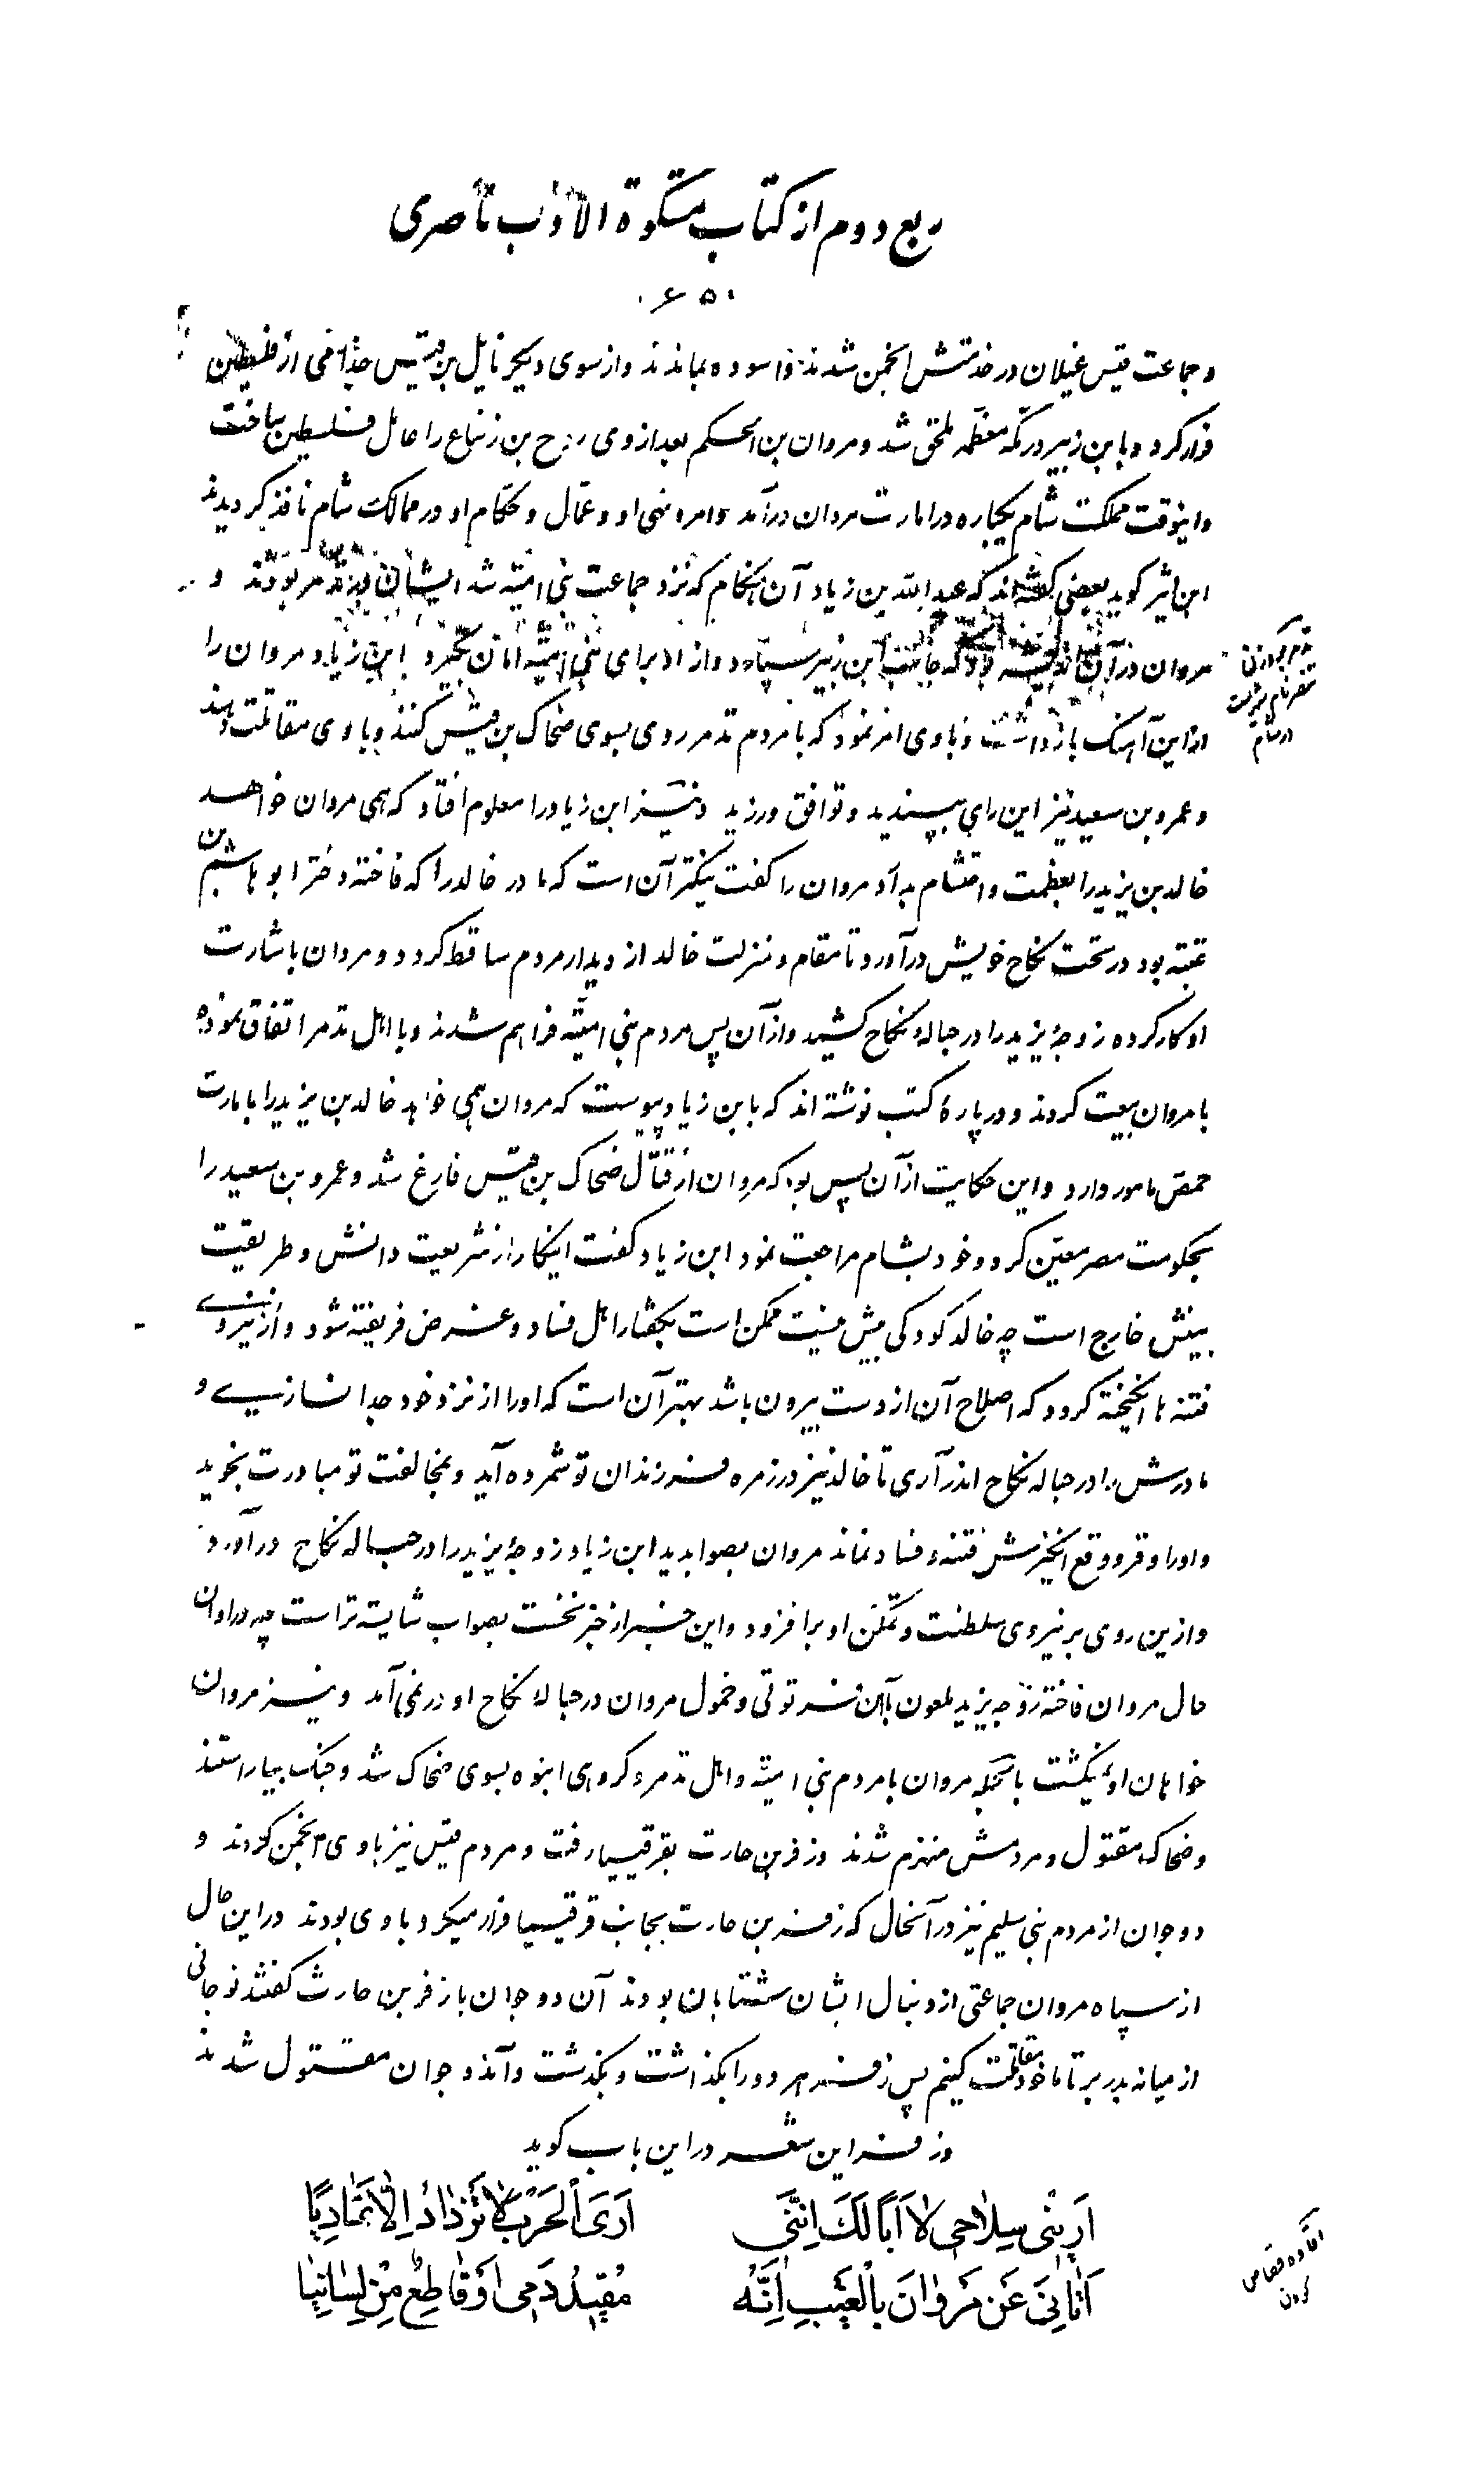 ربع دوم از کتاب مشکوة الادب ناصری
۶۵۰
و جماعت قیس غیلان در خدمتش انجمن شدند و آسوده بماندند و از سوی دیگر نایل بن قیس جذامی از فلسطین
فرار کرد و با ابن زبیر در مکه معظمه ملحق شد و مروان بن الحکم بعد از وی روح بن زنباع را عامل فلسطین ساخت
و اینوقت مملکت شام یکباره در امارت مروان درآمد و امر و نهی او و عمال و حکام او در ممالک شام نافذ گردید
ابن اثیر گوید بعضی گفته‌اند که عبیدالله بن زیاد آن هنگام که نزد جماعت بنی امیه شد ایشان در تدمر بودند و
مروان در آن اندیشه بود که جانب ابن زبیر سپارد و از او برای بنی امیه امان بگیرد ابن زیاد مروان را
از این آهنگ باز داشت و با وی امر نمود که با مردم تدمر روی بسوی ضحاک بن قیس کنند و با وی مقاتلت دهند
و عمرو بن سعید نیز این رای بپسندید و توافق ورزید و نیز ابن زیاد را معلوم افتاد که همی مروان خواهد
خالد بن یزید را بعظمت و احتشام بدارد مروان را گفت نیکتر آن است که مادر خالد را که فاخته دختر ابو هاشم بن
عتبه بود در تحت نکاح خویش درآورد تا مقام و منزلت خالد از دیدار مردم ساقط گردد و مروان باشارت
او کار کرده زوجهٔ یزید را در حبالهٔ نکاح کشید و از آن پس مردم بنی امیه فراهم شدند و با اهل تدمر اتفاق نموده
با مروان بیعت کردند و در پارهٔ کتب نوشته‌اند که با ابن زیاد پیوست که مروان همی خواهد خالد بن یزید را بامارت
حمص مامور دارد و این حکایت از آن پس بود که مروان از قتال ضحاک بن قیس فارغ شد و عمرو بن سعید را
بحکومت مصر معین کرد و خود بشام مراجعت نمود ابن زیاد گفت اینکار از شریعت دانش و طریقت
بینش خارج است چه خالد کودکی بیش نیست ممکن است بگفتار اهل فساد و غرض فریفته شود و از نیروی
فتنه ها انگیخته گردد که اصلاح آن از دست بیرون باشد بهتر آن است که او را از نزد خود جدا نسازی و
مادرش را در حباله نکاح اندر آری تا خالد نیز در زمره فرزندان تو شمرده آید و بمخالفت تو مبادرت نجوید
و او را وقر و وقع انگیزش فتنه و فساد نماند مروان بصوابدید ابن زیاد زوجهٔ یزید را در حباله نکاح درآورد
و ازین روی بر نیروی سلطنت و تمکن او برافزود و این خبر از خبر نخست بصواب شایسته‌تر است چه در اوان
حال مروان فاخته زوجه یزید ملعون با آن فرتوتی و خمول مروان در حبالهٔ نکاح او در نمی‌آمد و نیز مروان
خواهان او نمیگشت بالجمله مروان با مردم بنی امیه و اهل تدمر و گروهی انبوه بسوی ضحاک شد و جنگ بیاراستند
و ضحاک مقتول و مردمش منهزم شدند و زفر بن حارث بقرقیسیا رفت و مردم قیس نیز با وی انجمن کردند و
دو جوان از مردم بنی سلیم نیز در آنحال که زفر بن حارث بجانب قرقیسیا فرار میکرد با وی بودند در این حال
از سپاه مروان جماعتی از دنبال ایشان شتابان بودند آن دو جوان با زفر بن حارث گفتند تو جانی
از میانه بدر بر تا ما خود مقاتلت کنیم پس زفر هر دو را بگذاشت و بگذشت و آندو جوان مقتول شدند
و زفر این شعر در این باب گوید
أَرِینی سِلاحی لا أَبا لَکَ اِنَّنی   أَرَی الْحَرْبَ لا تَزْدادُ اِلّا تَمادِیا
أَتانِیَ عَنْ مَرْوانَ بِالْغَیْبِ اِنَّهُ   مُقیدُ دَمی اَوْ قاطِعٌ مِنْ لِسانِیا
در شام